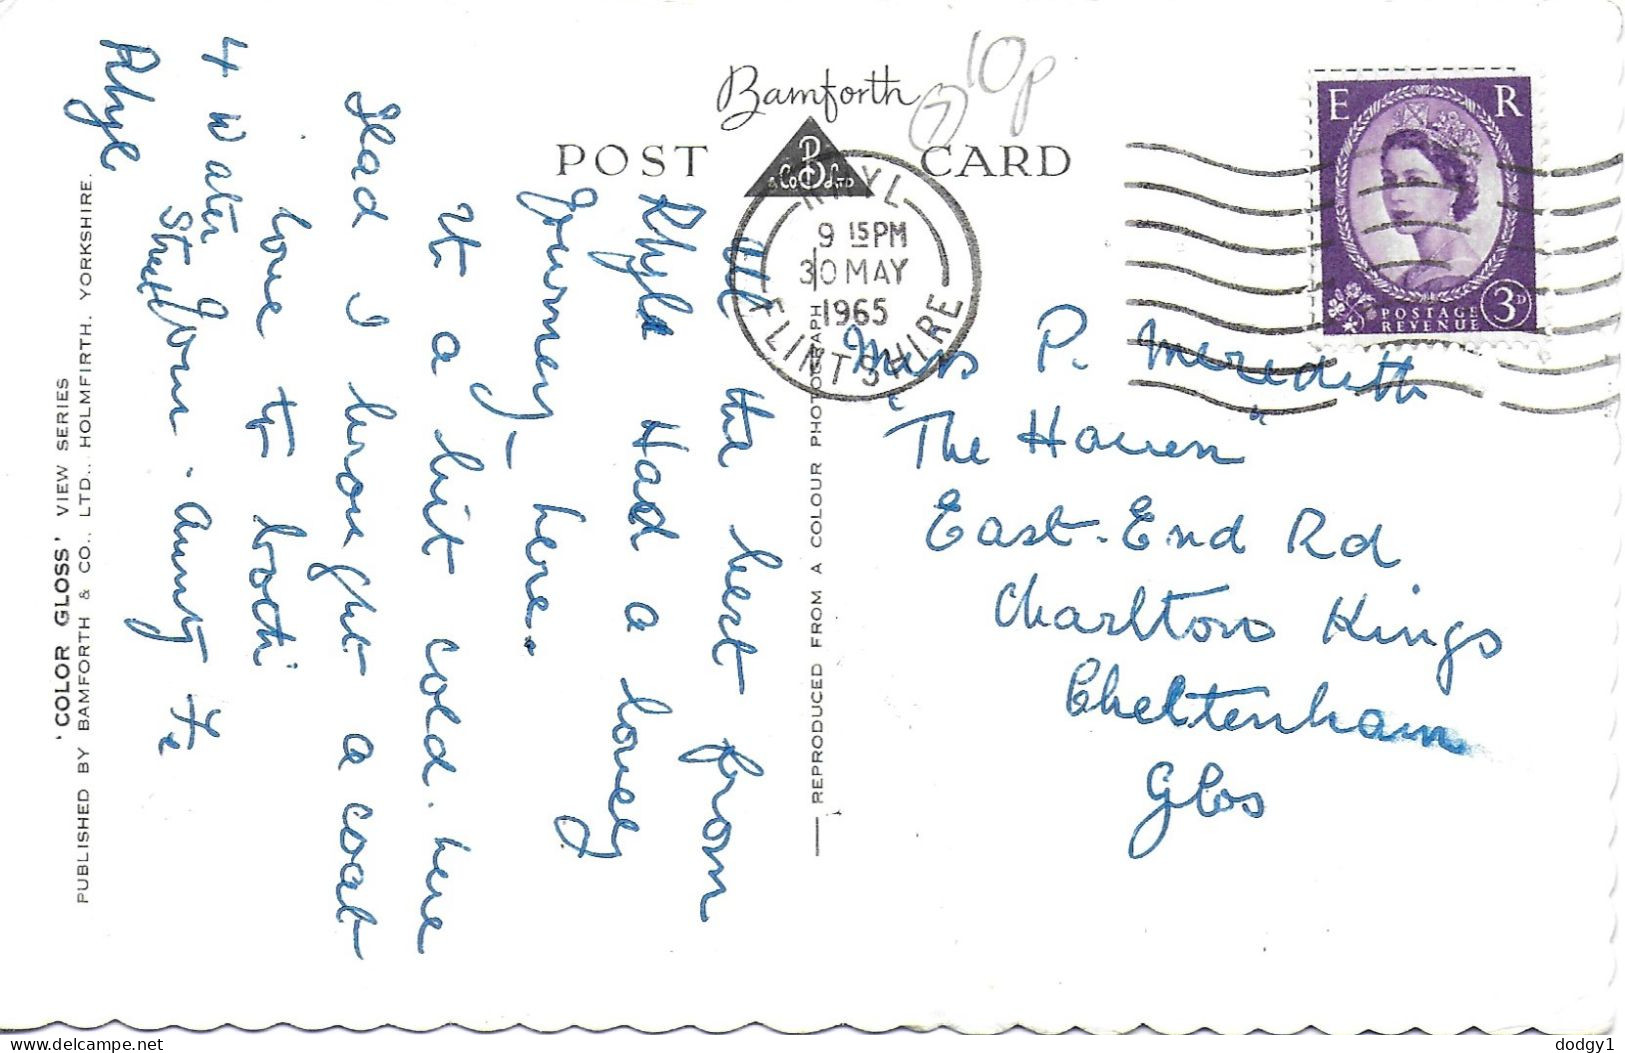 Bamforth
POST CARD
B
& Co Ld LTD
10p
7
RHYL
9 15 PM
30 MAY
1965
FLINTSHIRE
E R
POSTAGE
REVENUE
3D
Miss P. Meredith
"The Haven"
East-End Rd
Charlton Kings
Cheltenham
Glos
All the best from
Rhyle Had a lovely
Journey - here.
It a bit cold. here
Glad I brought a coat
love to both
Your Aunty
4 Water
Street
Rhyl
REPRODUCED FROM A COLOUR PHOTOGRAPH
'COLOR GLOSS' VIEW SERIES
PUBLISHED BY BAMFORTH & CO., LTD., HOLMFIRTH, YORKSHIRE.
delcampe.net
dodgy1